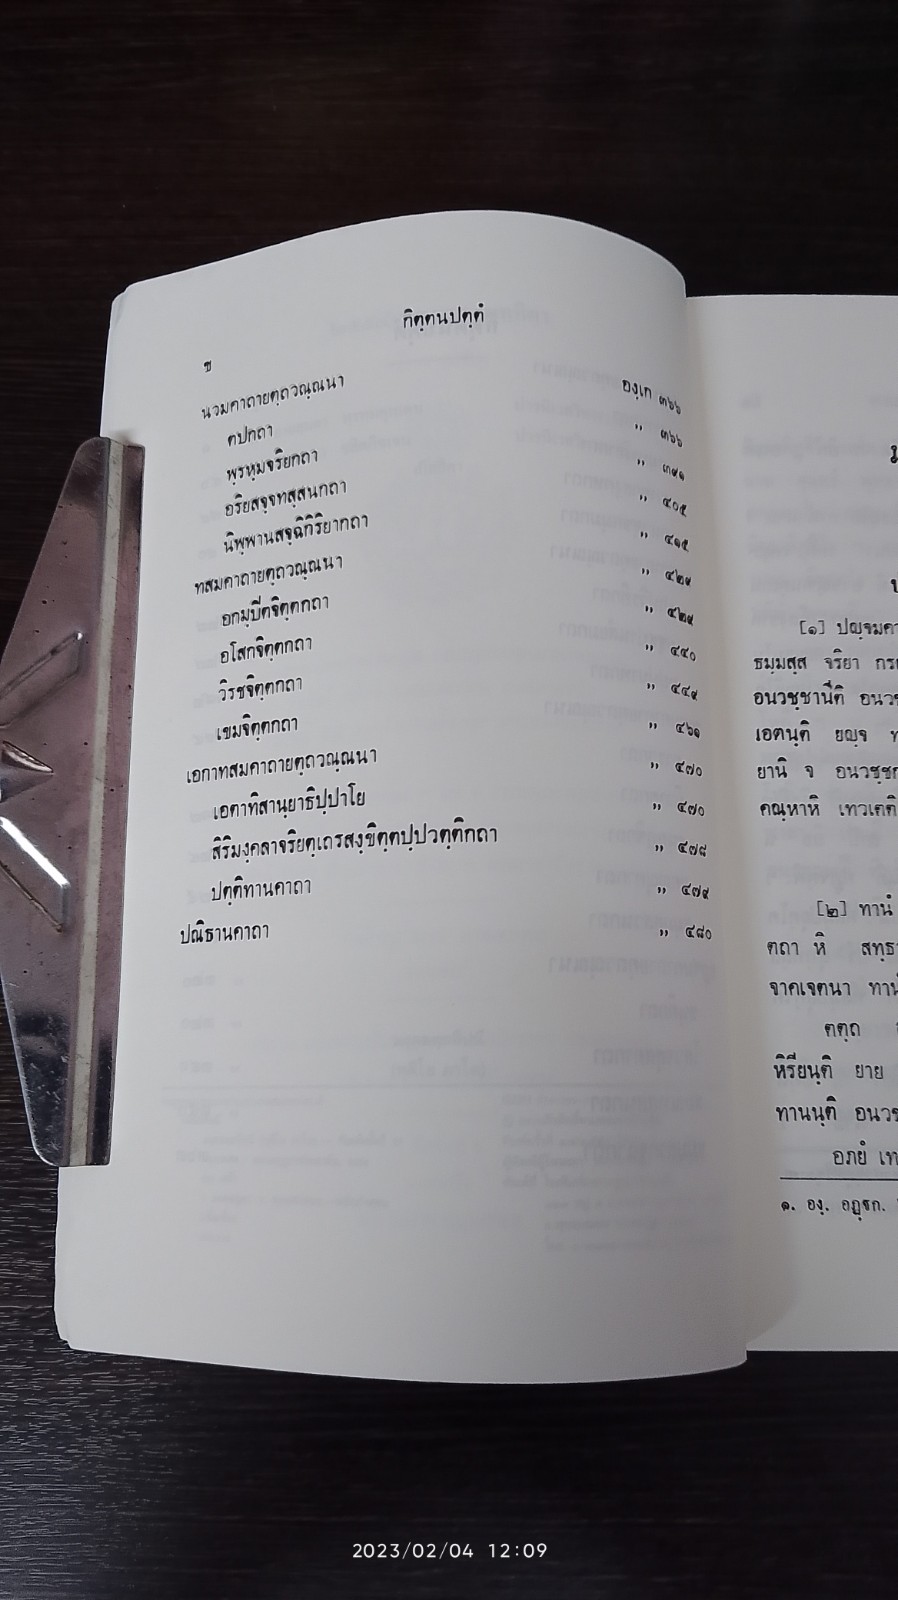 กิตฺตนปตฺตํ
ช
นวมคาถายตฺถวณฺณนา องฺเก ๓๖๖
ตปกถา ,, ๓๖๖
พฺรหฺมจริยกถา ,, ๓๙๑
อริยสจฺจทสฺสนกถา ,, ๔๐๕
นิพฺพานสจฺฉิกิริยากถา ,, ๔๑๕
ทสมคาถายตฺถวณฺณนา ,, ๔๒๙
อกมฺปิตจิตฺตกถา ,, ๔๒๙
อโสกจิตฺตกถา ,, ๔๔๐
วิรชจิตฺตกถา ,, ๔๔๙
เขมจิตฺตกถา ,, ๔๖๑
เอกาทสมคาถายตฺถวณฺณนา ,, ๔๗๐
เอตาทิสานฺยาธิปฺปาโย ,, ๔๗๐
สิริมงฺคลาจริยตฺเถรสงฺขิตฺตปฺปวตฺติกถา ,, ๔๗๘
ปตฺติทานคาถา ,, ๔๗๙
ปณิธานคาถา ,, ๔๘๐
[๑] ปญฺจมคา
ธมฺมสฺส จริยา
อนวชฺชานีติ อนวช
เอตนฺติ ยญฺจ
ยานิ จ อนวชฺช
คณฺหาหิ เทวเตติ
[๒] ทานํ
ตถา หิ สทฺธา
จาคเจตนา ทานํ
ตตฺถ
หิรียนฺติ ยาย
ทานนฺติ อนวช
อภยํ
๑. องฺ. อฏฺฐก.
2023/02/04 12:09